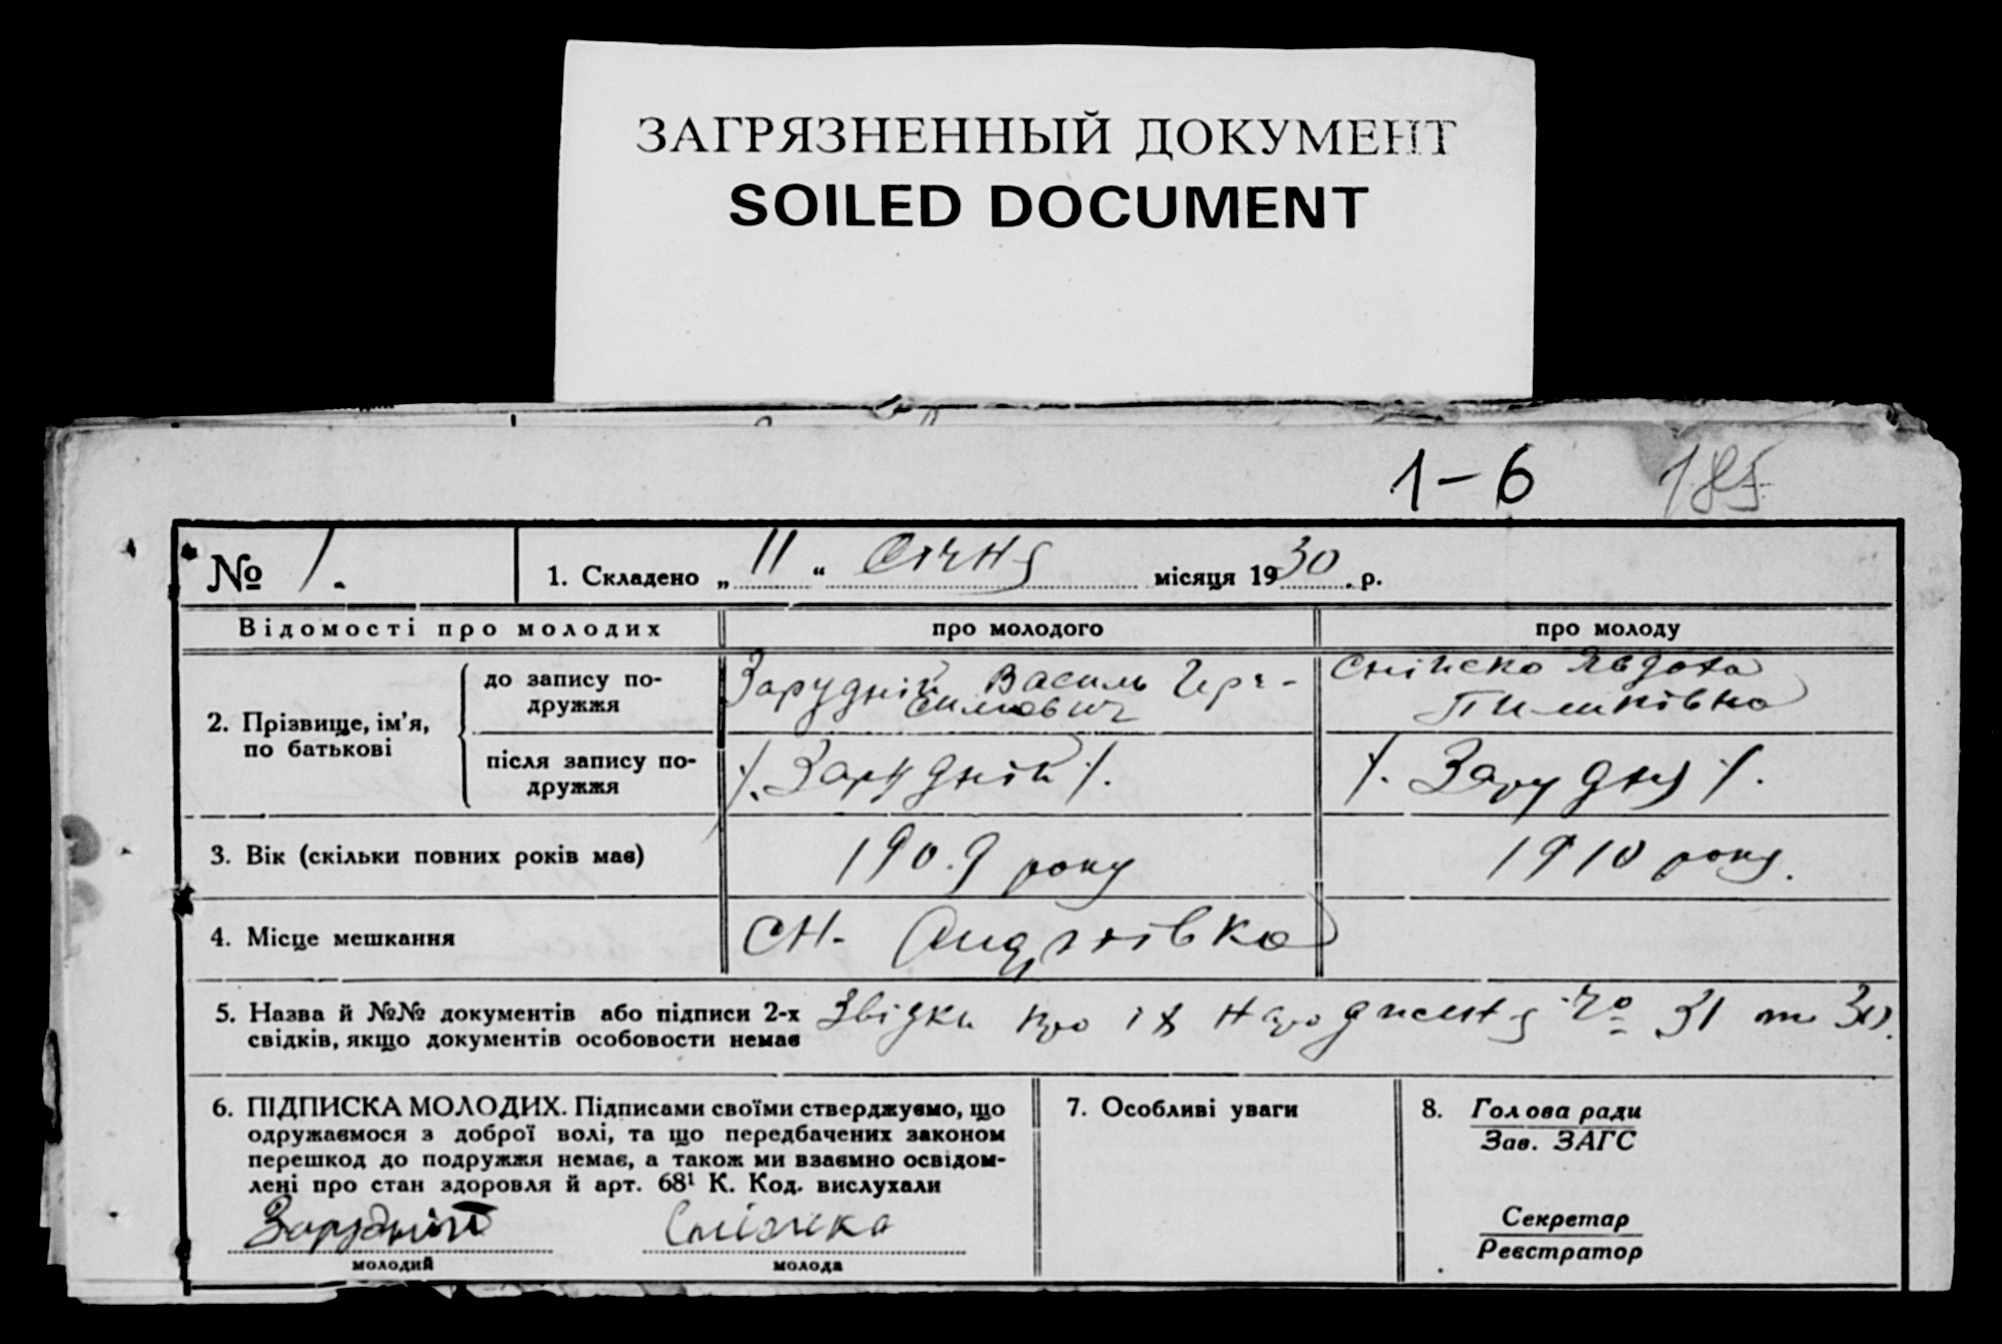 ЗАГРЯЗНЕННЫЙ ДОКУМЕНТ
SOILED DOCUMENT
1-6 185
№ 1. 1. Складено „ 11 “ Січня місяця 1930 р.
Відомості про молодих про молодого про молоду
2. Прізвище, ім’я, по батькові
до запису подружжя
Зарудній Василь Гера-
симович
Явдоха
Пилипівна
після запису по-
дружжя
/. Зарудній /. /. Зарудня /.
3. Вік (скільки повних років має) 1909 року 1910 року.
4. Місце мешкання Андріївка
5. Назва й №№ документів або підписи 2-х Звідки про їх народження № 31 та 30.
свідків, якщо документів особовости немає
6. ПІДПИСКА МОЛОДИХ. Підписами своїми стверджуємо, що
одружаємося з доброї волі, та що передбачених законом
перешкод до подружжя немає, а також ми взаємно освідом-
лені про стан здоровля й арт. 68¹ К. Код. вислухали
Зарудній
молодий молода
7. Особливі уваги
8. Голова ради
Зав. ЗАГС
Секретар
Реєстратор